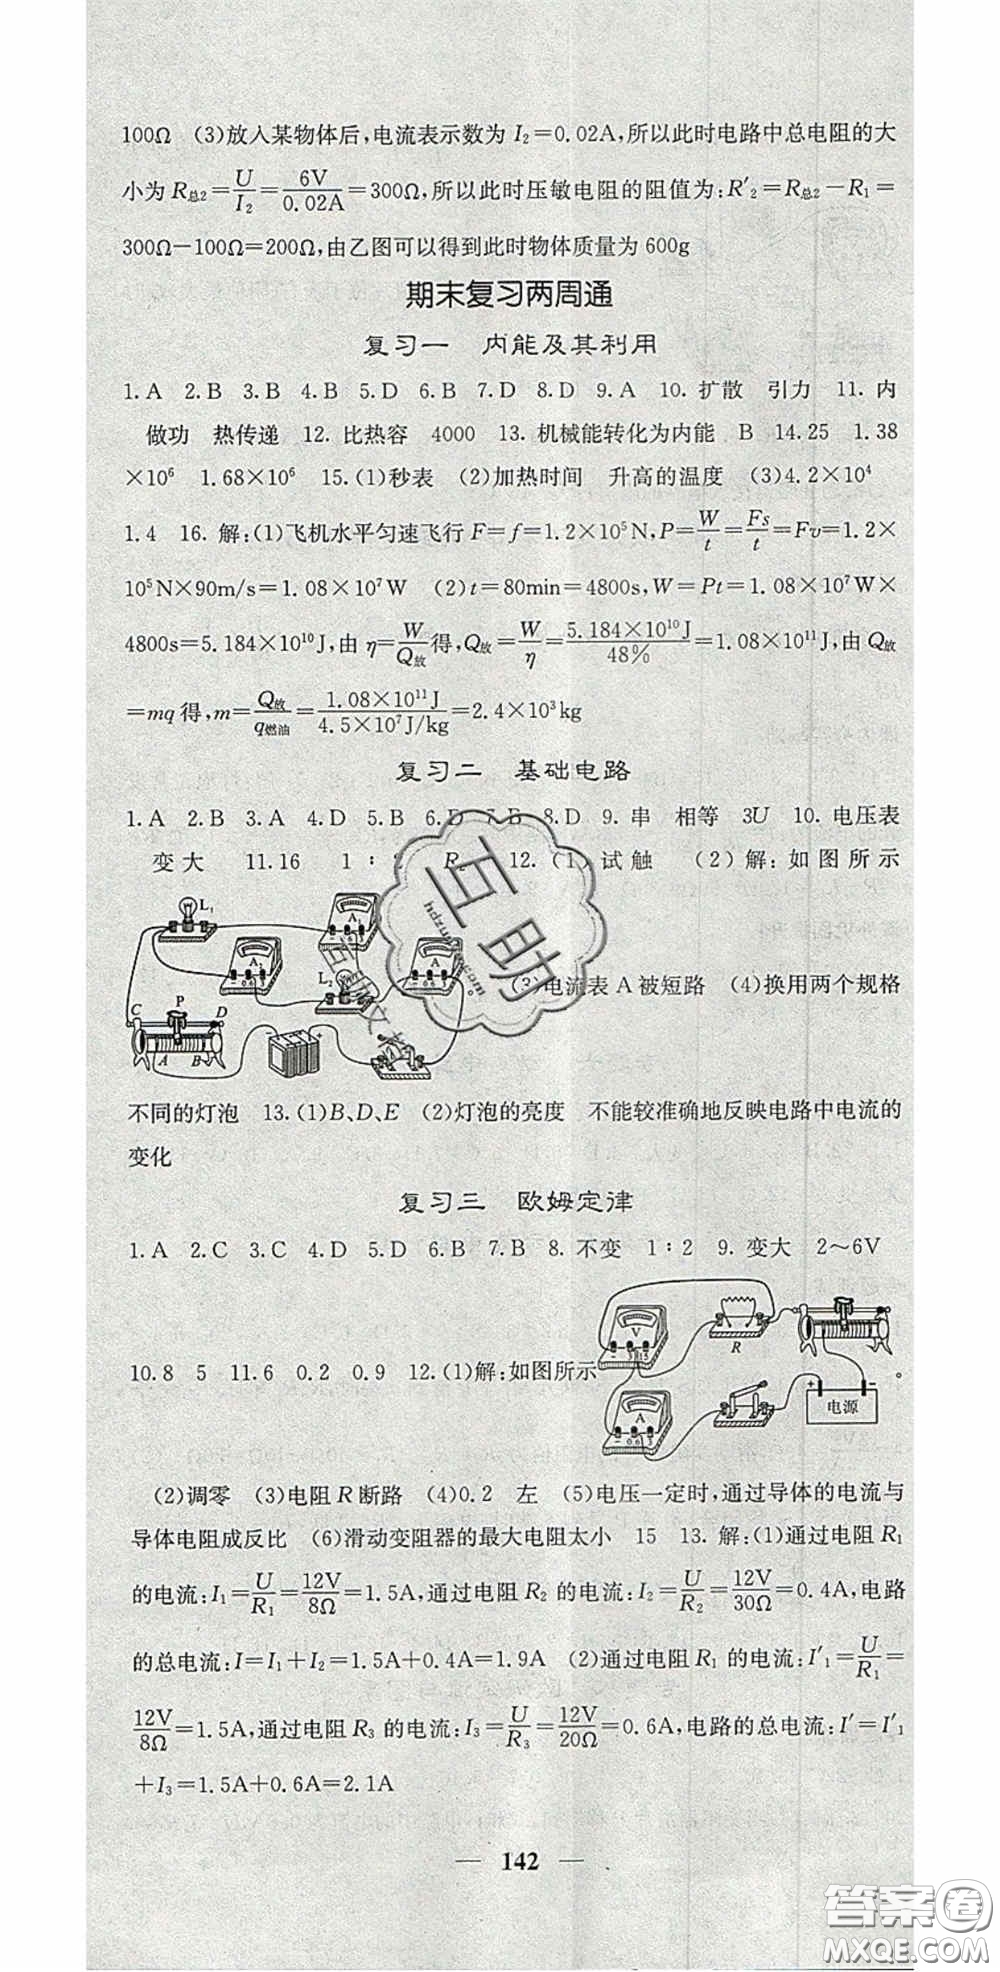 100Ω (3)放入某物体后,电流表示数为 I₂=0.02A,所以此时电路中总电阻的大
小为 R总2=U/I₂=6V/0.02A=300Ω,所以此时压敏电阻的阻值为:R′₂=R总2−R₁=
300Ω−100Ω=200Ω,由乙图可以得到此时物体质量为 600g
期末复习两周通
复习一 内能及其利用
1. A 2. B 3. B 4. B 5. D 6. B 7. D 8. D 9. A 10. 扩散 引力 11. 内
做功 热传递 12. 比热容 4000 13. 机械能转化为内能 B 14. 25 1.38
×10⁶ 1.68×10⁶ 15. (1)秒表 (2)加热时间 升高的温度 (3)4.2×10⁴
1.4 16. 解:(1)飞机水平匀速飞行 F=f=1.2×10⁵N,P=W/t=Fs/t=Fv=1.2×
10⁵N×90m/s=1.08×10⁷W (2)t=80min=4800s,W=Pt=1.08×10⁷W×
4800s=5.184×10¹⁰J,由 η=W/Q放得,Q放=W/η=5.184×10¹⁰J/48%=1.08×10¹¹J,由 Q放
=mq 得,m=Q放/q燃油=1.08×10¹¹J/4.5×10⁷J/kg=2.4×10³kg
复习二 基础电路
1. A 2. B 3. A 4. D 5. B 6. D 7. B 8. D 9. 串 相等 3U 10. 电压表
变大 11. 16 1∶2 12. (1)试触 (2)解:如图所示
L₁ A₁ A₂ A L₂
C P D A B − +
(3)电流表 A 被短路 (4)换用两个规格
不同的灯泡 13. (1)B、D、E (2)灯泡的亮度 不能较准确地反映电路中电流的
变化
复习三 欧姆定律
1. A 2. C 3. C 4. D 5. D 6. B 7. B 8. 不变 1∶2 9. 变大 2～6V
10. 8 5 11. 6 0.2 0.9 12. (1)解:如图所示 。
V R A + − 电源
(2)调零 (3)电阻 R 断路 (4)0.2 左 (5)电压一定时,通过导体的电流与
导体电阻成反比 (6)滑动变阻器的最大电阻太小 15 13. 解:(1)通过电阻 R₁
的电流:I₁=U/R₁=12V/8Ω=1.5A,通过电阻 R₂ 的电流:I₂=U/R₂=12V/30Ω=0.4A,电路
的总电流:I=I₁+I₂=1.5A+0.4A=1.9A (2)通过电阻 R₁ 的电流:I′₁=U/R₁=
12V/8Ω=1.5A,通过电阻 R₃ 的电流:I₃=U/R₃=12V/20Ω=0.6A,电路的总电流:I′=I′₁
+I₃=1.5A+0.6A=2.1A
— 142 —
互助
答案圈
MXQE.COM